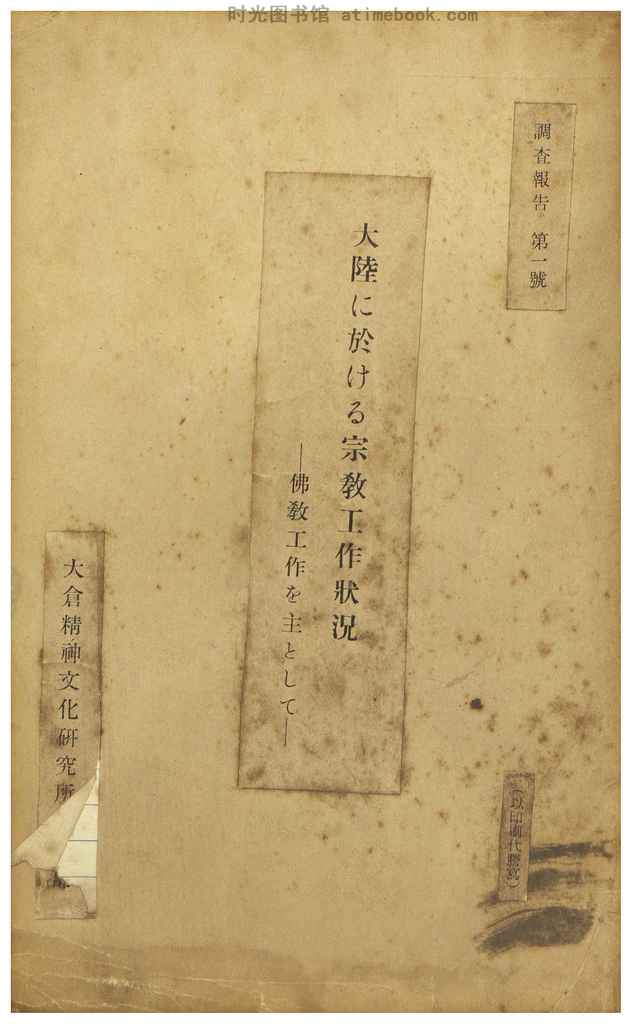 时光图书馆 atimebook.com
調査報告 第一號
大陸に於ける宗教工作狀况
―佛教工作を主として―
(以印刷代謄寫)
大倉精神文化研究所